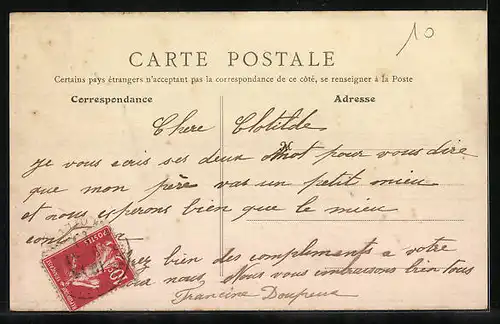 10
CARTE POSTALE
Certains pays étrangers n'acceptant pas la correspondance de ce côté, se renseigner à la Poste
Correspondance
Adresse
Chere Clotilde
Je vous écris ses deux mot pour vous dire
que mon père vas un petit mieu
et nous esperons bien que le mieu
bien des complements a votre
nous, Nous vous bien tous
Francine
POSTES
10